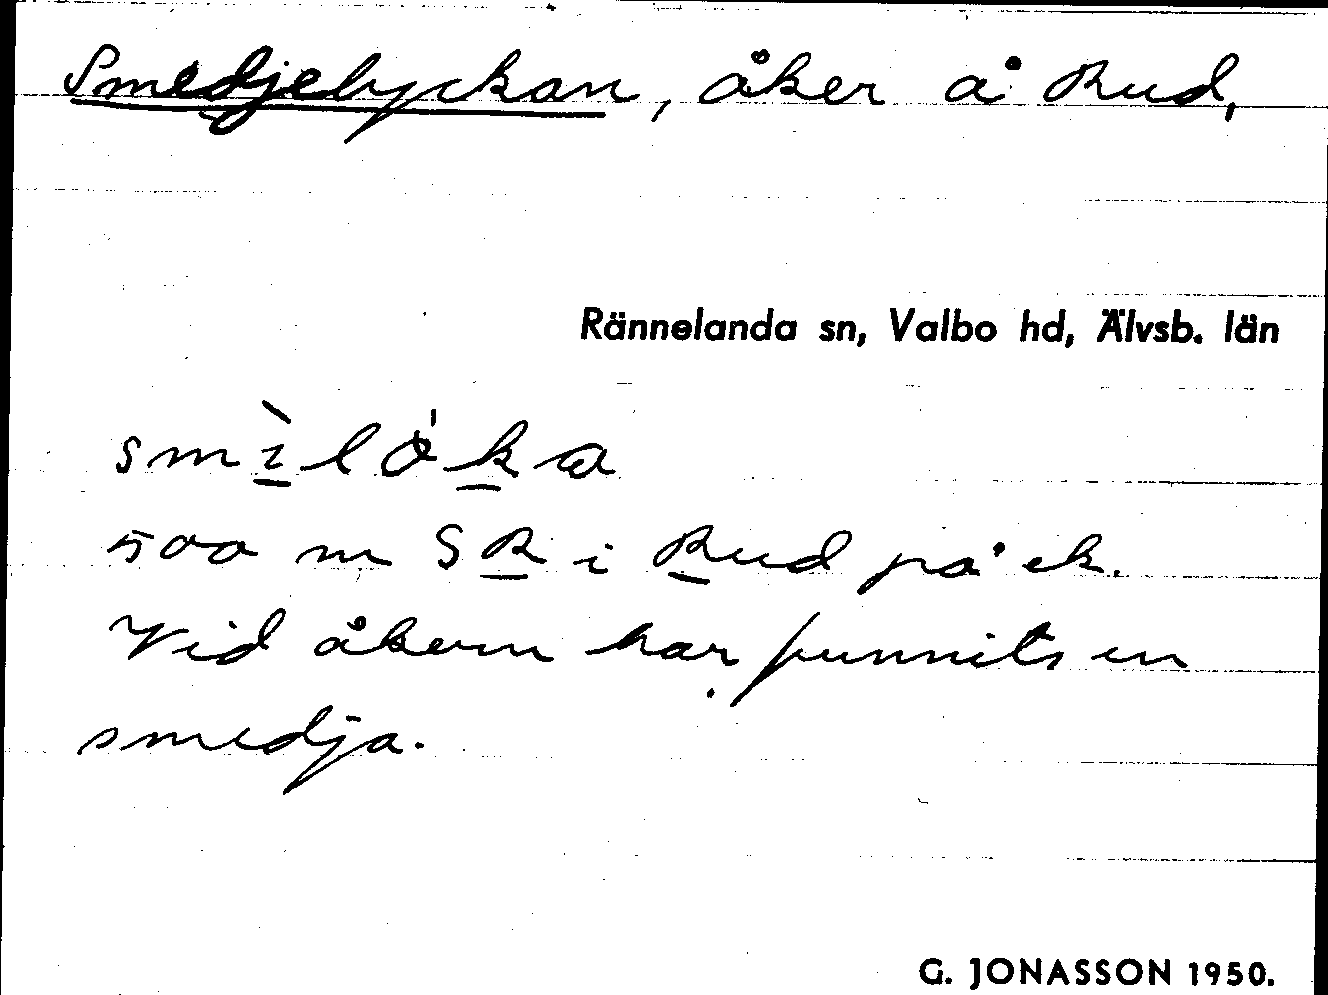 Smedjelyckan, åker å Rud,
Rännelanda sn, Valbo hd, Älvsb. län
smìlö́ka
500 m S R i Rud på ek.
Vid åkern har funnits en
smedja.
G. JONASSON 1950.